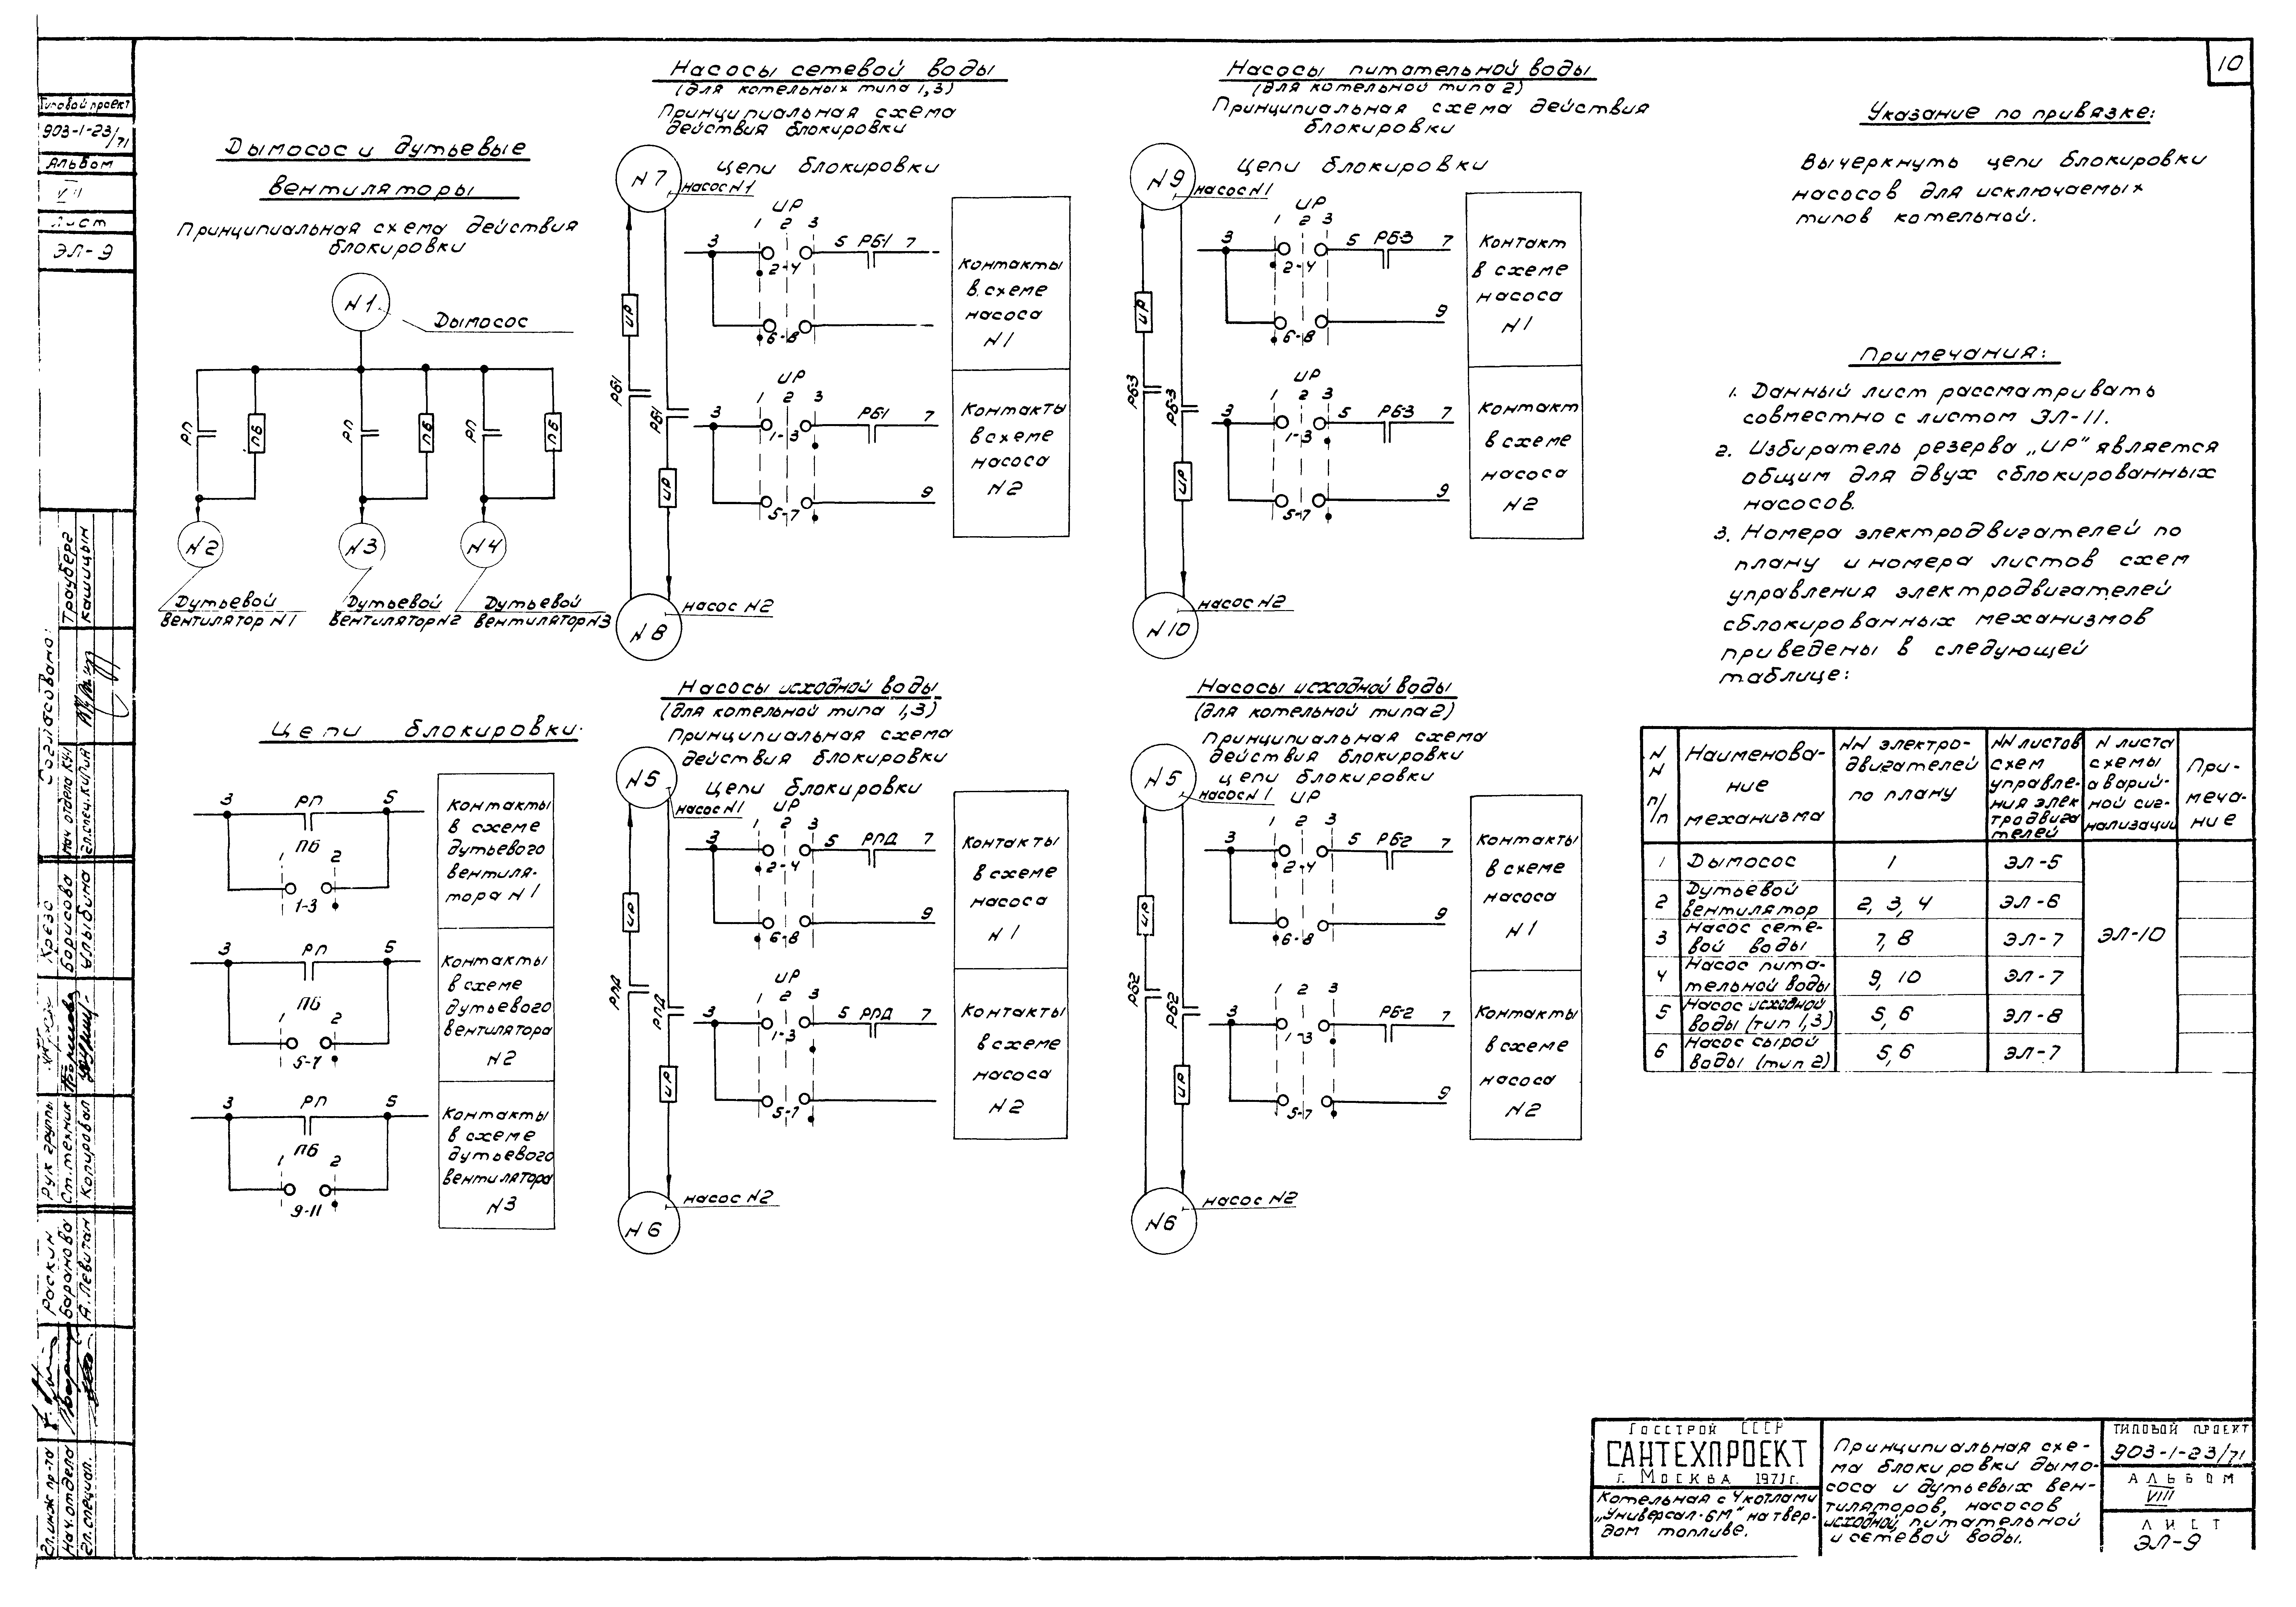 10
Типовой проект
903-1-23/71
Альбом
VIII
Лист
ЭЛ-9
Дымосос и дутьевые
вентиляторы
Принципиальная схема действия
блокировки
N1
Дымосос
РП
ПБ
РП
ПБ
РП
ПБ
N2
N3
N4
Дутьевой
вентилятор N1
Дутьевой
вентилятор N2
Дутьевой
вентилятор N3
Цепи блокировки.
3 РП 5
ПБ
1 2
1-3
Контакты
в схеме
дутьевого
вентиля-
тора N1
3 РП 5
ПБ
1 2
5-7
Контакты
в схеме
дутьевого
вентилятора
N2
3 РП 5
ПБ
1 2
9-11
Контакты
в схеме
дутьевого
вентилятора
N3
Насосы сетевой воды
(для котельных типа 1,3)
Принципиальная схема
действия блокировки
Цепи блокировки
N7
насос N1
ИР
РБ1
РБ1
ИР
N8
насос N2
ИР
1 2 3
3 5 РБ1 7
2-4
6-8
Контакты
в схеме
насоса
N1
ИР
1 2 3
3 5 РБ1 7
1-3
9
5-7
Контакты
в схеме
насоса
N2
Насосы питательной воды
(для котельной типа 2)
Принципиальная схема действия
блокировки
Цепи блокировки
N9
насос N1
ИР
РБ3
РБ3
ИР
N10
насос N2
ИР
1 2 3
3 5 РБ3 7
2-4
9
6-8
Контакт
в схеме
насоса
N1
ИР
1 2 3
3 5 РБ3 7
1-3
9
5-7
Контакт
в схеме
насоса
N2
Насосы исходной воды
(для котельной типа 1,3)
Принципиальная схема
действия блокировки
Цепи блокировки
N5
насос N1
ИР
РПД
РПД
ИР
N6
насос N2
ИР
1 2 3
3 5 РПД 7
2-4
9
6-8
Контакты
в схеме
насоса
N1
ИР
1 2 3
3 5 РПД 7
1-3
5-7
Контакты
в схеме
насоса
N2
Насосы исходной воды
(для котельной типа 2)
Принципиальная схема
действия блокировки
цепи блокировки
N5
насос N1
ИР
РБ2
РБ2
ИР
N6
насос N2
ИР
1 2 3
3 5 РБ2 7
2-4
9
6-8
Контакты
в схеме
насоса
N1
1 2 3
3 5 РБ2 7
1-3
9
5-7
Контакты
в схеме
насоса
N2
Указание по привязке:
Вычеркнуть цепи блокировки
насосов для исключаемых
типов котельной.
Примечания:
1. Данный лист рассматривать
совместно с листом ЭЛ-11.
2. Избиратель резерва „ИР" является
общим для двух сблокированных
насосов.
3. Номера электродвигателей по
плану и номера листов схем
управления электродвигателей
сблокированных механизмов
приведены в следующей
таблице:
NN п/п
Наименова-
ние
механизма
NN электро-
двигателей
по плану
NN листов
схем
управле-
ния элек
тродвига
телей
N листа
схемы
аварий-
ной сиг-
нализации
При-
меча-
ние
1 Дымосос 1 ЭЛ-5
2 Дутьевой
вентилятор 2, 3, 4 ЭЛ-6
3 Насос сете-
вой воды 7, 8 ЭЛ-7 ЭЛ-10
4 Насос пита-
тельной воды 9, 10 ЭЛ-7
5 Насос исходной
воды (тип 1,3) 5, 6 ЭЛ-8
6 Насос сырой
воды (тип 2) 5,6 ЭЛ-7
ГОССТРОЙ СССР
САНТЕХПРОЕКТ
г. МОСКВА 1971г.
Котельная с 4 котлами
„Универсал-6М" на твер-
дом топливе.
Принципиальная схе-
ма блокировки дымо-
соса и дутьевых вен-
тиляторов, насосов
исходной, питательной
и сетевой воды.
ТИПОВОЙ ПРОЕКТ
903-1-23/71
АЛЬБОМ
VIII
ЛИСТ
ЭЛ-9
Согласовано:
Нач отдела КИП Трауберг
Гл. спец. КИПиА Кашицын
Рук группы Крезо
Ст. техник Борисова
Копировал Улыбина
Гл. инж пр-та Раскин
Нач. отдела Баранова
Гл. специал. А. Левитан